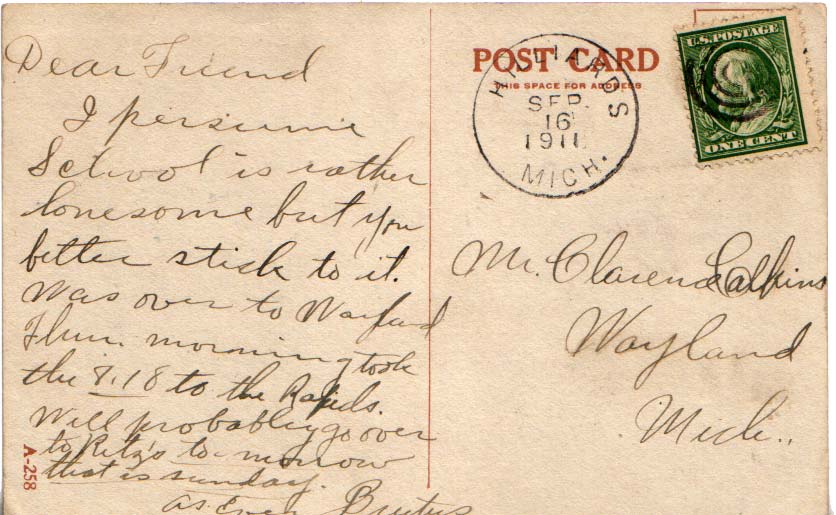 Dear Friend
I persume
School is rather
lonesome but you
better stick to it.
Was over to Wayland
Thur. morning took
the 8.18 to the Rapids.
Will probably go over
to Ritz's to-morrow
that is sunday.
As Ever Brutus
A-258
POST CARD
THIS SPACE FOR ADDRESS
HILLIARDS
SEP.
16
1911
MICH.
U.S. POSTAGE
ONE CENT
Mr. Clarence Calkins
Wayland
Mich.